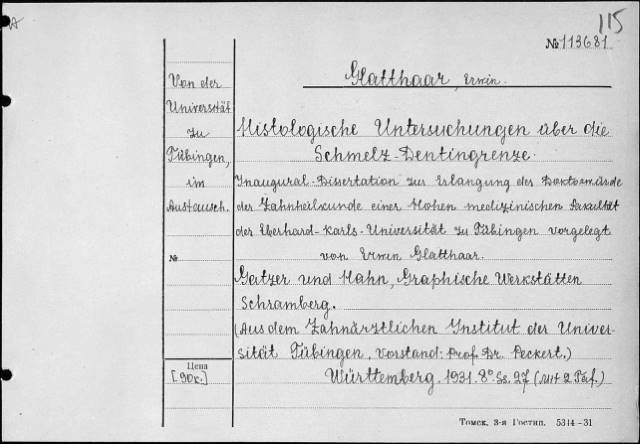 115
№113681
Glatthaar, Erwin.
Von der
Universität
zu
Tübingen,
im
Austausch.
№
Цена
[90к.]
Histologische Untersuchungen über die
Schmelz-Dentingrenze.
Inaugural-Dissertation zur Erlangung der Doktorwürde
der Zahnheilkunde einer Hohen medizinischen Fakultät
der Eberhard-Karls-Universität zu Tübingen vorgelegt
von Erwin Glatthaar.
Gatzer und Hahn, Graphische Werkstätten
Schramberg.
(Aus dem Zahnärztlichen Institut der Univer-
sität Tübingen, Vorstand: Prof. Dr. Peckert.)
Württemberg, 1931. 8° Ss. 27 (Mit 2 Taf.)
Томск. 3-я Гостип. 5314-31